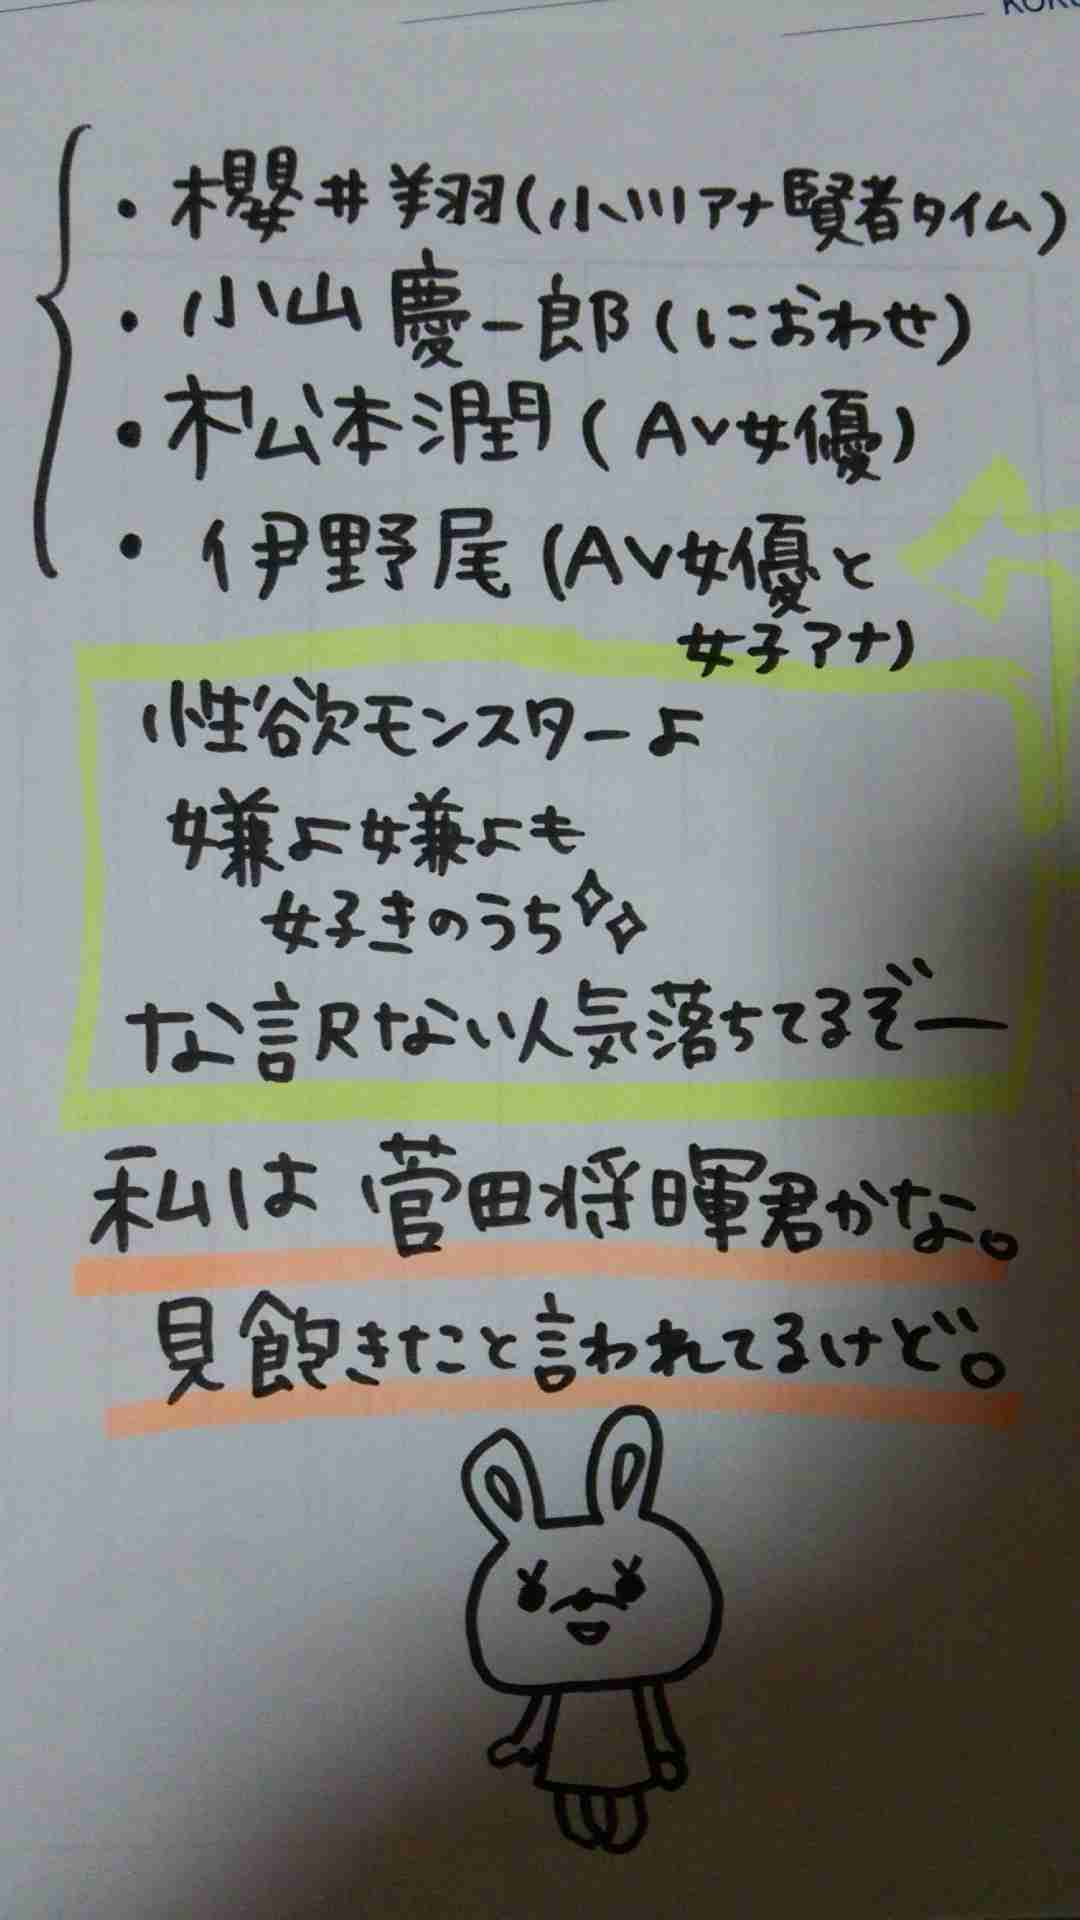 ・櫻井翔(小川アナ賢者タイム)
・小山慶一郎(におわせ)
・松本潤(AV女優)
・伊野尾(AV女優と
女子アナ)
性欲モンスターよ
嫌よ嫌よも
好きのうち
な訳ない人気落ちてるぞー
私は菅田将暉君かな。
見飽きたと言われてるけど。